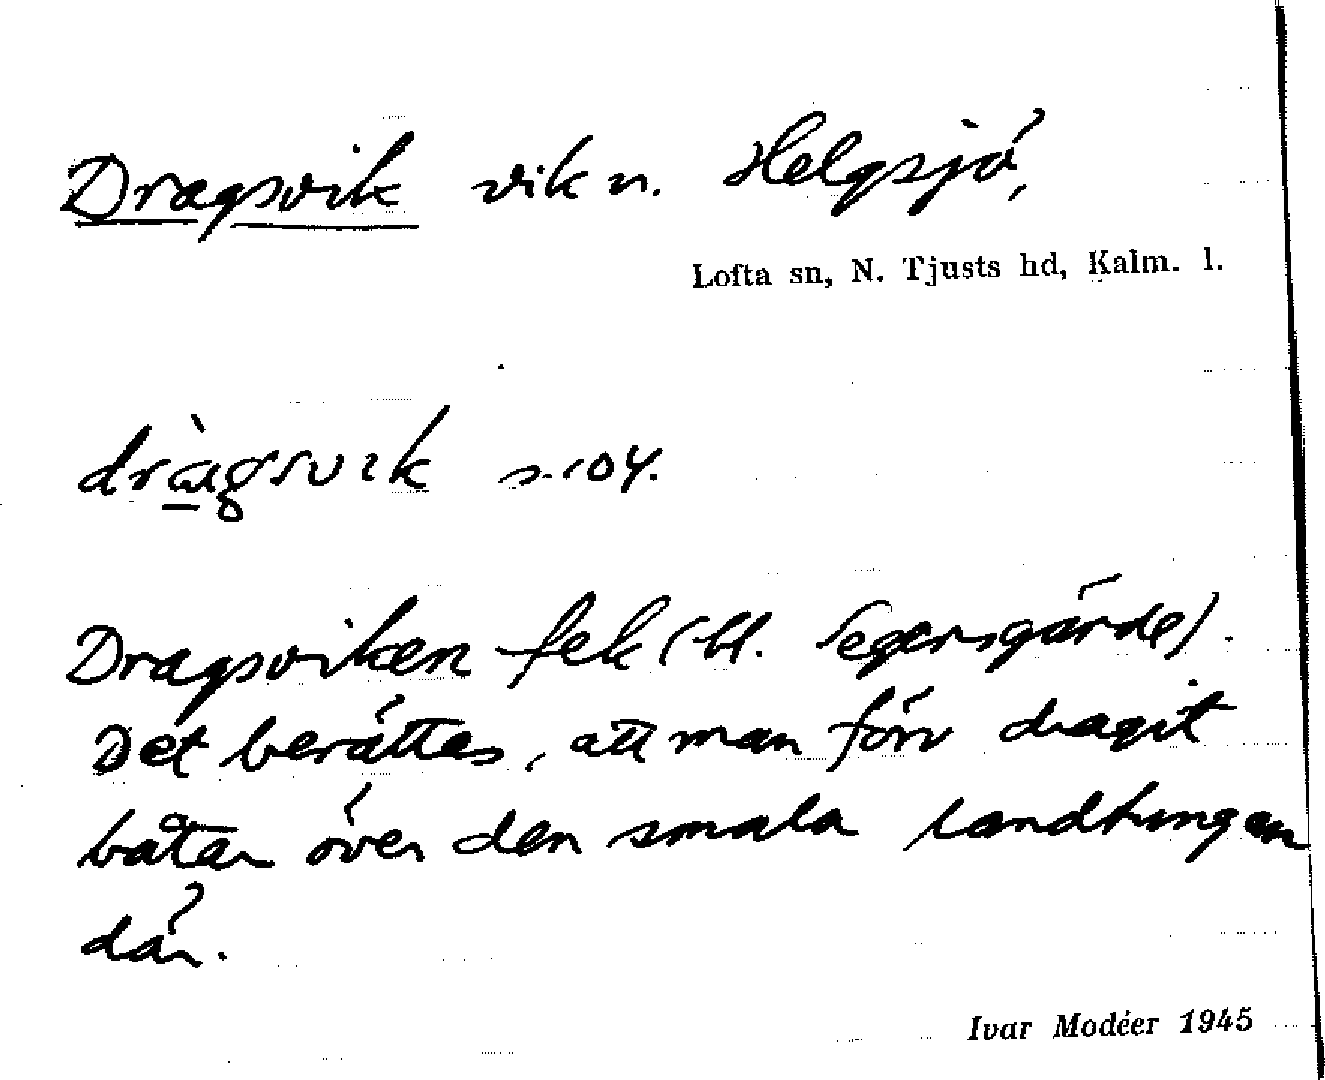 Dragsvik vik n. Helgsjö,
Lofta sn, N. Tjusts hd, Kalm. l.
dràgsvɪk s. 104.
Dragsviken fek (bl. Segersgärde).
Det berättes, att man förr dragit
båtar över den smala landtungen
där.
Ivar Modéer 1945